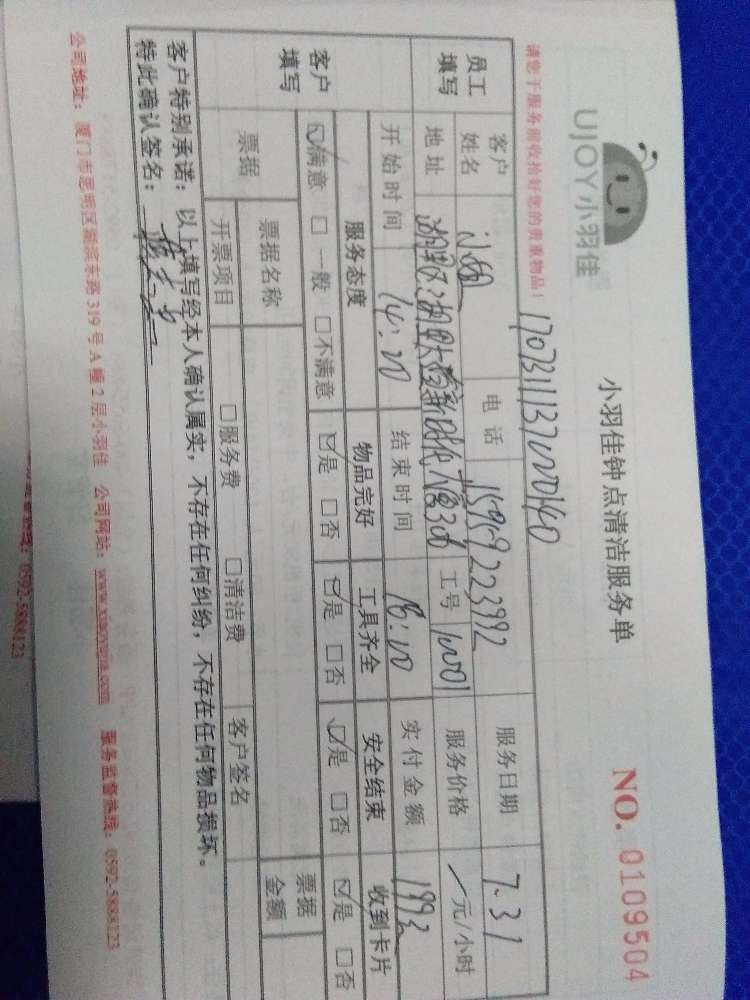 UJOY小羽佳
小羽佳钟点清洁服务单
NO. 0109504
请您于服务前收拾好您的贵重物品！
170731113700140
员工填写
客户姓名 小姐 电话 15959223992 服务日期 7.31
地址 工号 10001 服务价格 元/小时
客户填写
开始时间 14:00 结束时间 18:00 实付金额 1992
服务态度 物品完好 工具齐全 安全结束 收到卡片
☑满意 □一般 □不满意 ☑是 □否 ☑是 □否 ☑是 □否 ☑是 □否
票据 票据名称 票据金额
开票项目 □服务费 □清洁费 客户签名
客户特别承诺：以上填写经本人确认属实，不存在任何纠纷，不存在任何物品损坏。
特此确认签名：
公司地址：厦门市思明区湖滨东路319号A幢2层小羽佳 公司网站：www.xiaoyujia.com 服务监督热线：0592-5888123
0592-5888123